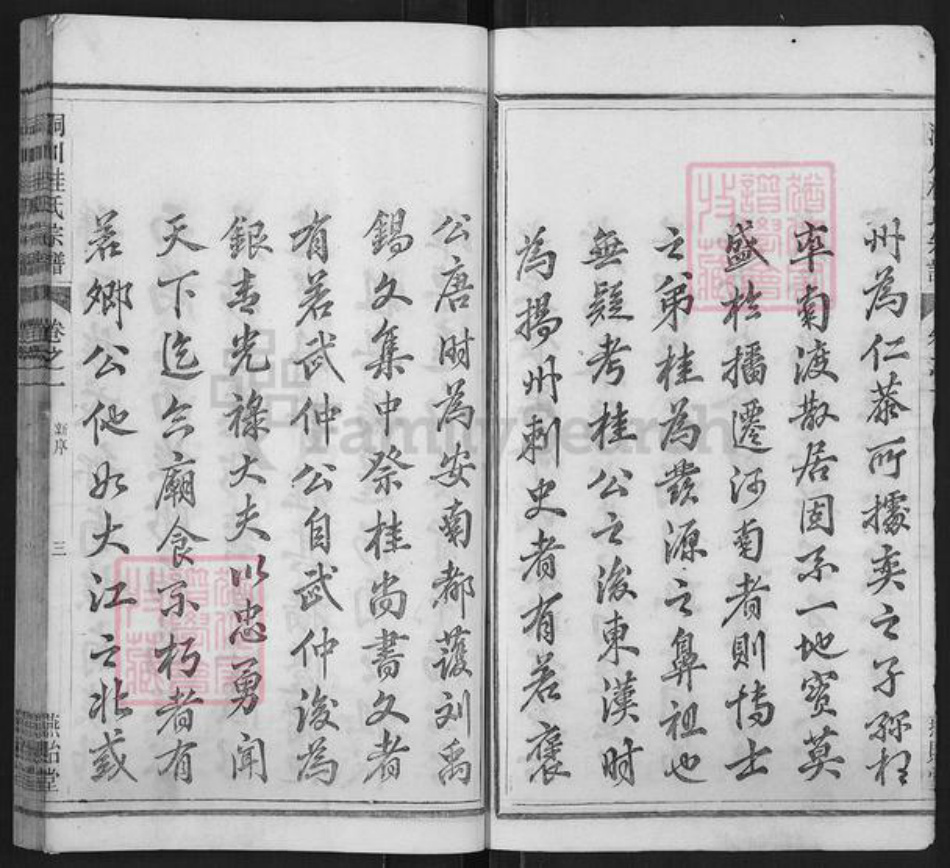 州為仁恭所據奕之子孫相
率南渡散居固不一地實莫
盛於播遷河南者則博士
之弟桂為發源之鼻祖也
無疑考桂公之後東漢時
為揚州刺史者有若褒
公唐時為安南都護刘禹
錫文集中祭桂尚書文者
有若武仲公自武仲後為
銀青光祿大夫以忠勇聞
天下迄今廟食不朽者有
若卿公他如大江之北或
桂氏宗譜
卷之一
新序
三
燕貽堂
FamilySearch